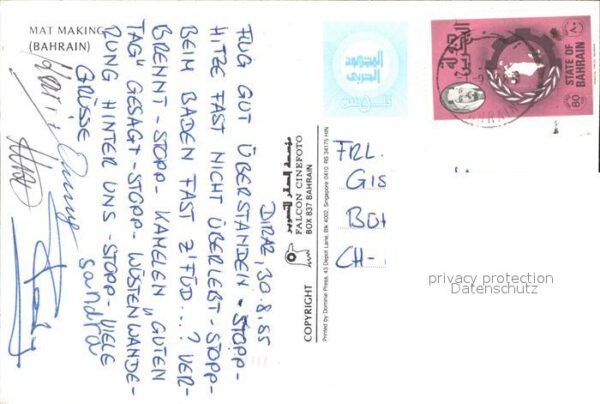 MAT MAKING
(BAHRAIN)
DIRAZ, 30.8.85
FLUG GUT ÜBERSTANDEN - STOPP -
HITZE FAST NICHT ÜBERLEBT - STOPP -
BEIM BADEN FAST Z'FÜD...? VER-
BRENNT - STOPP - KAMELEN "GUTEN
TAG" GESAGT - STOPP - WÜSTENWANDE-
RUNG HINTER UNS - STOPP - VIELE
GRÜSSE
Sandra
COPYRIGHT
FALCON CINEFOTO
BOX 837 BAHRAIN
Printed by Dominie Press, 43 Depot Lane, Blk 4002, Singapore 0410. RS 34175 HIN
المجهود
الحربي
دولة
البحرين
STATE OF
BAHRAIN
80
٨٠
FRL.
GIS
BOH
CH-
privacy protection
Datenschutz